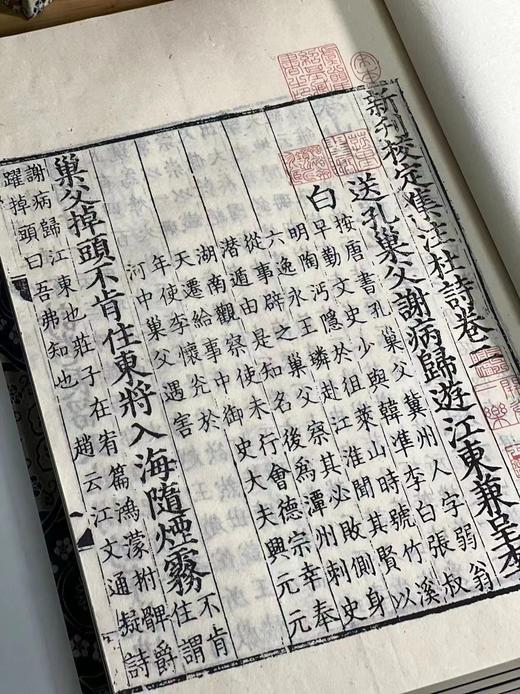 新刊校定集注杜詩卷二
送孔巢父謝病歸遊江東兼呈李
白
按唐書孔巢父冀州人字弱翁
早勤文史少與韓準李白張叔
明陶沔隱於徂萊山時號竹溪
六逸永王璘赴江淮聞其賢以
從事辟之巢父察其必敗側身
潛遁由是知名後為潭州刺史
湖南觀察使未行會德宗幸奉
天遷給事中御史大夫興元元
年使李懷光於
河中巢父遇害
巢父掉頭不肯住東將入海隨煙霧
不肯
住謂
謝病歸江東也莊子在宥篇鴻蒙拊髀爵
躍掉頭曰吾弗知也 趙云江文通擬詩